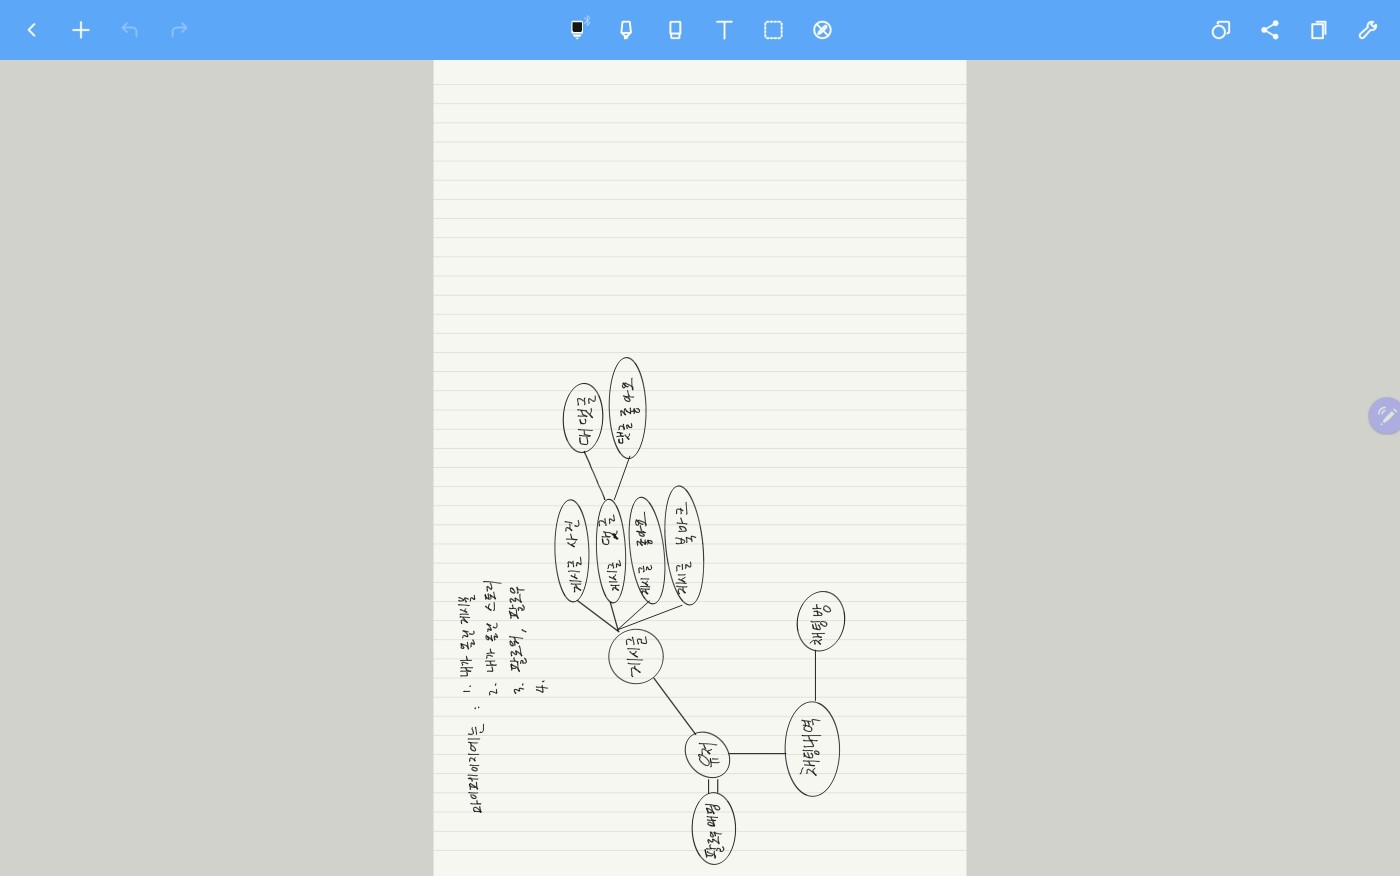 마이페이지에는 : 1. 내가 올린 게시물
2. 내가 올린 스토리
3. 팔로워, 팔로우
4.
게시글 사진
게시글 댓글
게시글 좋아요
게시글 북마크
대댓글
댓글 좋아요
게시글
유저
팔로우 매핑
채팅내역
채팅방